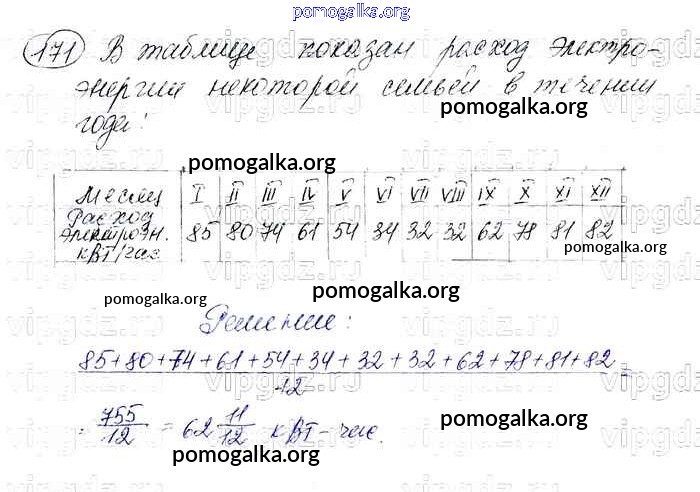 pomogalka.org
171 В таблице показан расход электро-
энергии некоторой семьей в течении
pomogalka.org
года:
pomogalka.org
Месяц I II III IV V VI VII VIII IX X XI XII
Расход
электроэн. 85 80 74 61 54 34 32 32 62 78 81 82
кВт/час
pomogalka.org
pomogalka.org
Решение:
85+80+74+61+54+34+32+32+62+78+81+82 =
12
755/12 = 62 11/12 кВт-час.
pomogalka.org
pomogalka.org